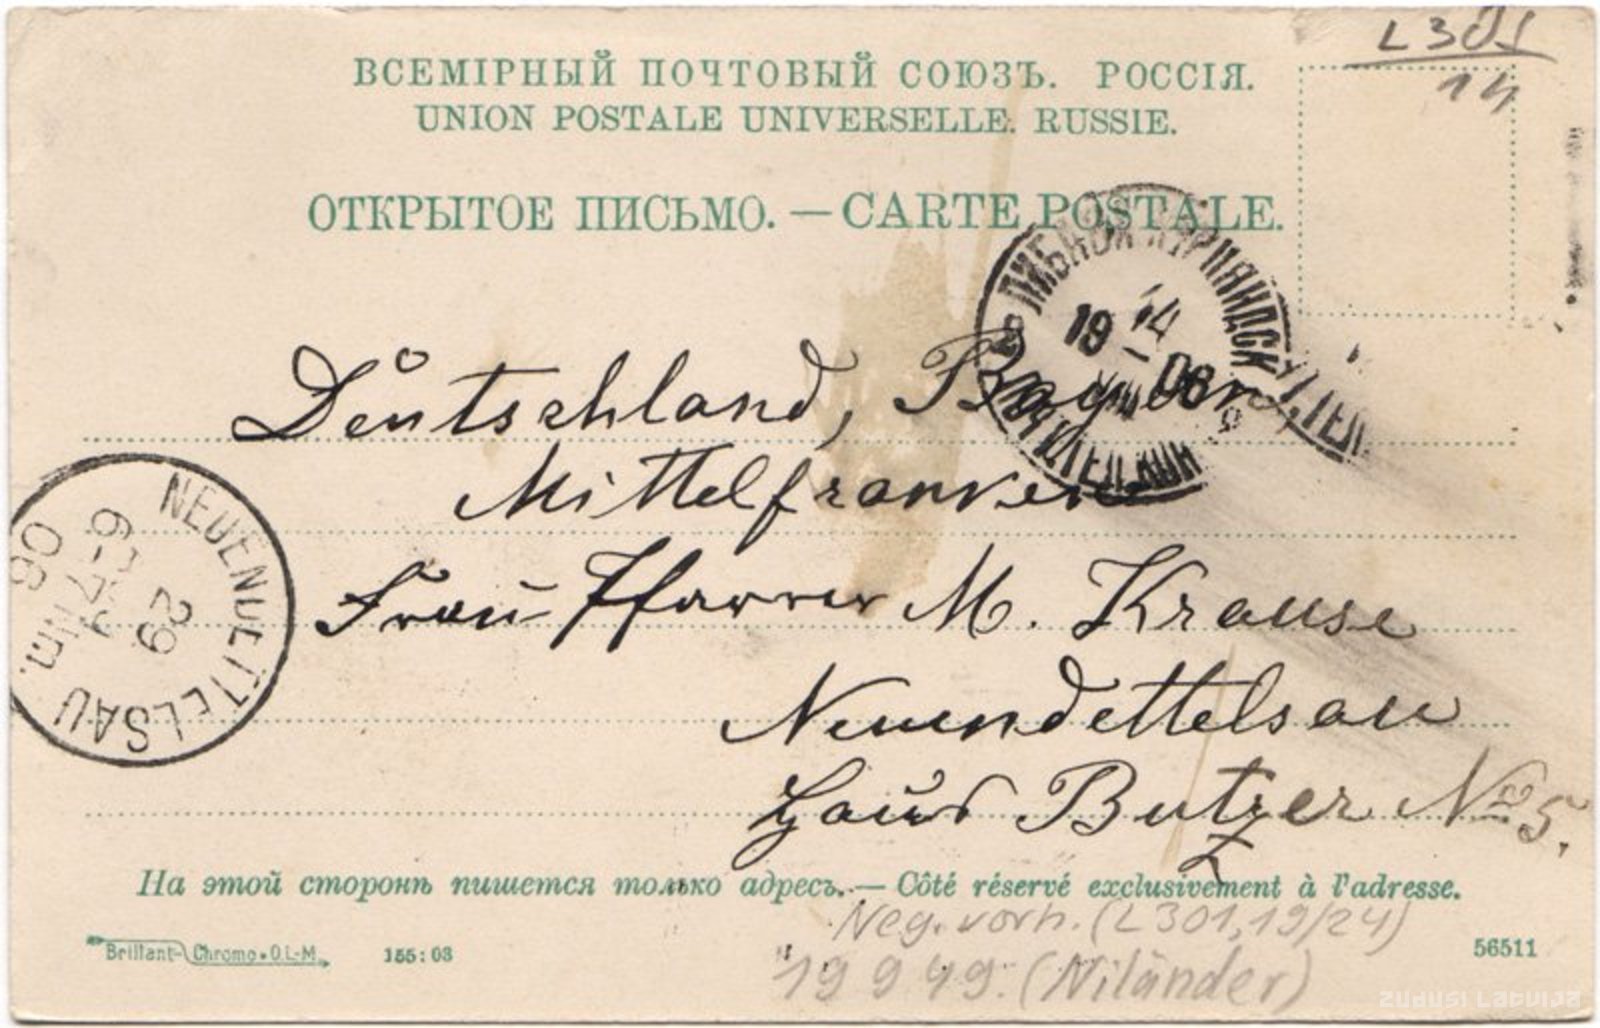 L 301
14
ВСЕМІРНЫЙ ПОЧТОВЫЙ СОЮЗЪ. РОССІЯ.
UNION POSTALE UNIVERSELLE. RUSSIE.
ОТКРЫТОЕ ПИСЬМО. — CARTE POSTALE.
19 14
06
Deutschland, Bayern
Mittelfranken
Frau Pfarrer M. Krause
Neuendettelsau
Haus Butzer No 5.
NEUENDETTELSAU
29
6-7 Nm.
06
На этой сторонѣ пишется только адресъ. — Côté réservé exclusivement à l'adresse.
Neg. vorh. (L 301, 19/24)
Brillant-Chromo • O.L-M.
155:03
56511
19949. (Niländer)
zudusi Latvija